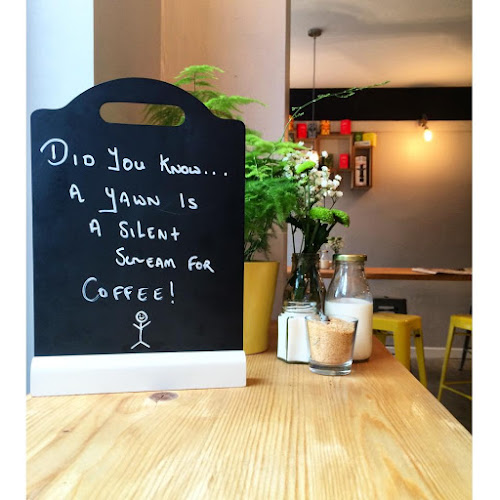 Did you know...
A yawn is
A silent
scream for
Coffee!